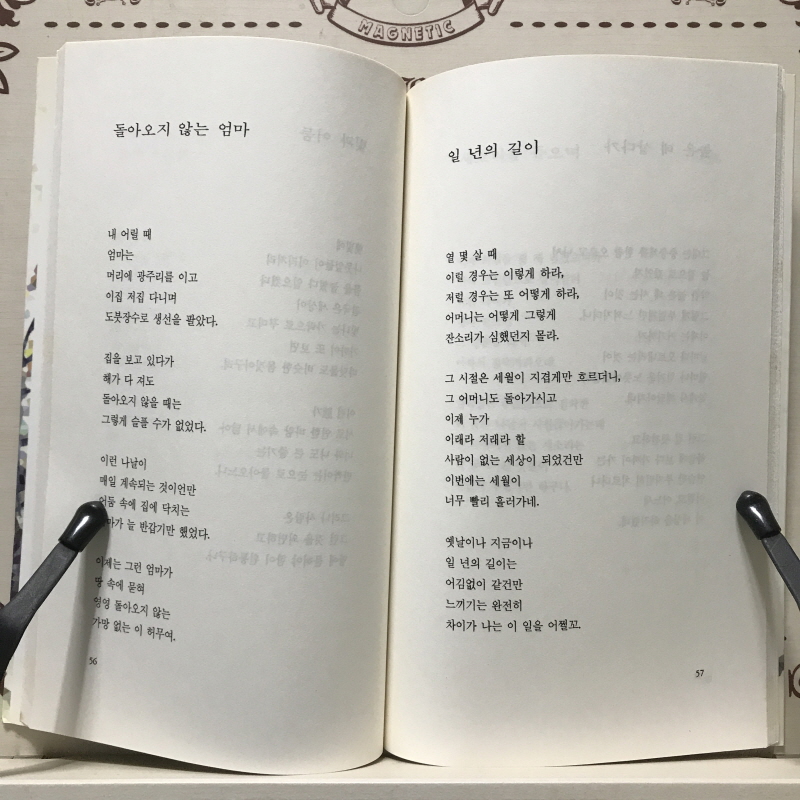 MAGNETIC
돌아오지 않는 엄마
내 어릴 때
엄마는
머리에 광주리를 이고
이집 저집 다니며
도붓장수로 생선을 팔았다.
집을 보고 있다가
해가 다 져도
돌아오지 않을 때는
그렇게 슬플 수가 없었다.
이런 나날이
매일 계속되는 것이언만
어둠 속에 집에 닥치는
엄마가 늘 반갑기만 했었다.
이제는 그런 엄마가
땅 속에 묻혀
영영 돌아오지 않는
가망 없는 이 허무여.
56
일 년의 길이
열 몇 살 때
이럴 경우는 이렇게 하라,
저럴 경우는 또 어떻게 하라,
어머니는 어떻게 그렇게
잔소리가 심했던지 몰라.
그 시절은 세월이 지겹게만 흐르더니,
그 어머니도 돌아가시고
이제 누가
이래라 저래라 할
사람이 없는 세상이 되었건만
이번에는 세월이
너무 빨리 흘러가네.
옛날이나 지금이나
일 년의 길이는
어김없이 같건만
느끼기는 완전히
차이가 나는 이 일을 어쩔꼬.
57